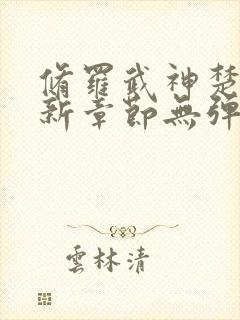 脩羅武神楚
新章節無彈
雲林清